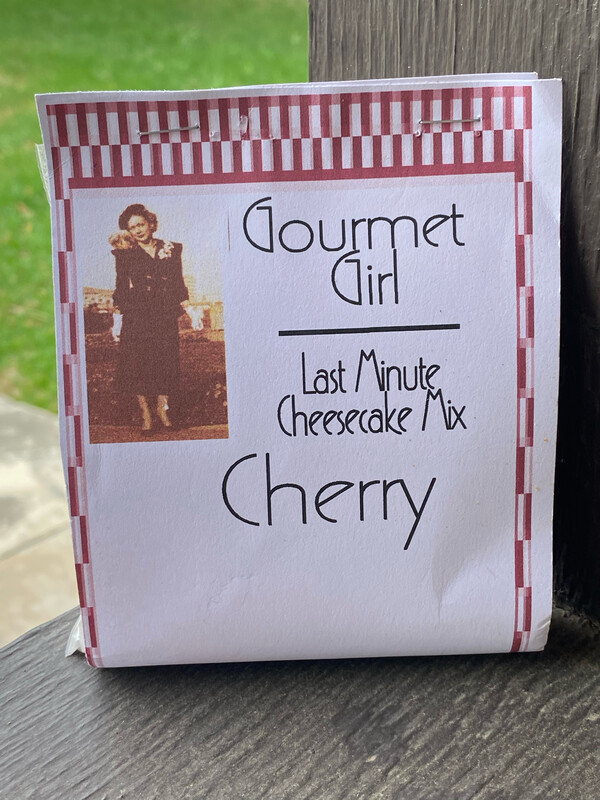 Gourmet
Girl
Last Minute
Cheesecake Mix
Cherry